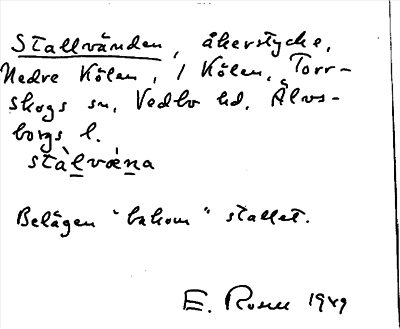 Stallvänden, åkerstycke,
Nedre Kölen, 1 Kölen, Torr-
skogs sn, Vedbo hd, Älvs-
borgs l.
stàlvæna
Belägen "bakom" stallet.
E. Rosell 1949